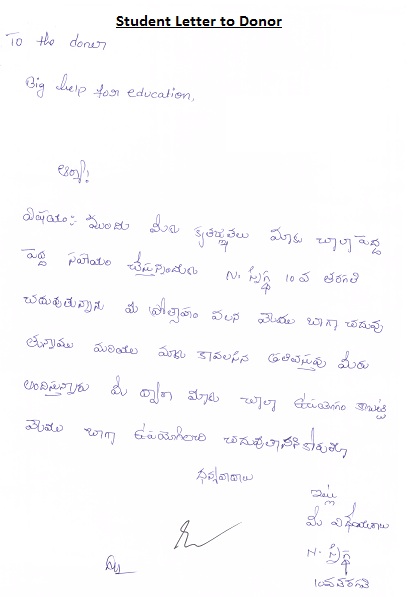 Student Letter to Donor
To the doner
Big help for education,
ఆర్యా!
విషయం:- ముందు మీకు కృతజ్ఞతలు మాకు చాలా పెద్ద
పెద్ద సహాయం చేస్తున్నందుకు N. స్నిగ్ధ 10 వ తరగతి
చదువుతున్నాను మీ ప్రోత్సాహం వలన మేము బాగా చదువు
తున్నాము మరియు మాకు కావలసిన ప్రతివస్తువు మీరు
అందిస్తున్నారు మీ ద్వారా మాకు చాలా ఉపయోగం కాబట్టి
మేము బాగా చదువుతామని
ధన్యవాదాలు
ఇట్లు
మీ విధేయురాలు
N. స్నిగ్ధ
10వ తరగతి